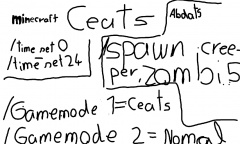 minecraft Ceats
Abdats
/time net 0
/time net 24
/spawn cree-
per. zombi5
/Gamemode 1=Ceats
/Gamemode 2=Nomral